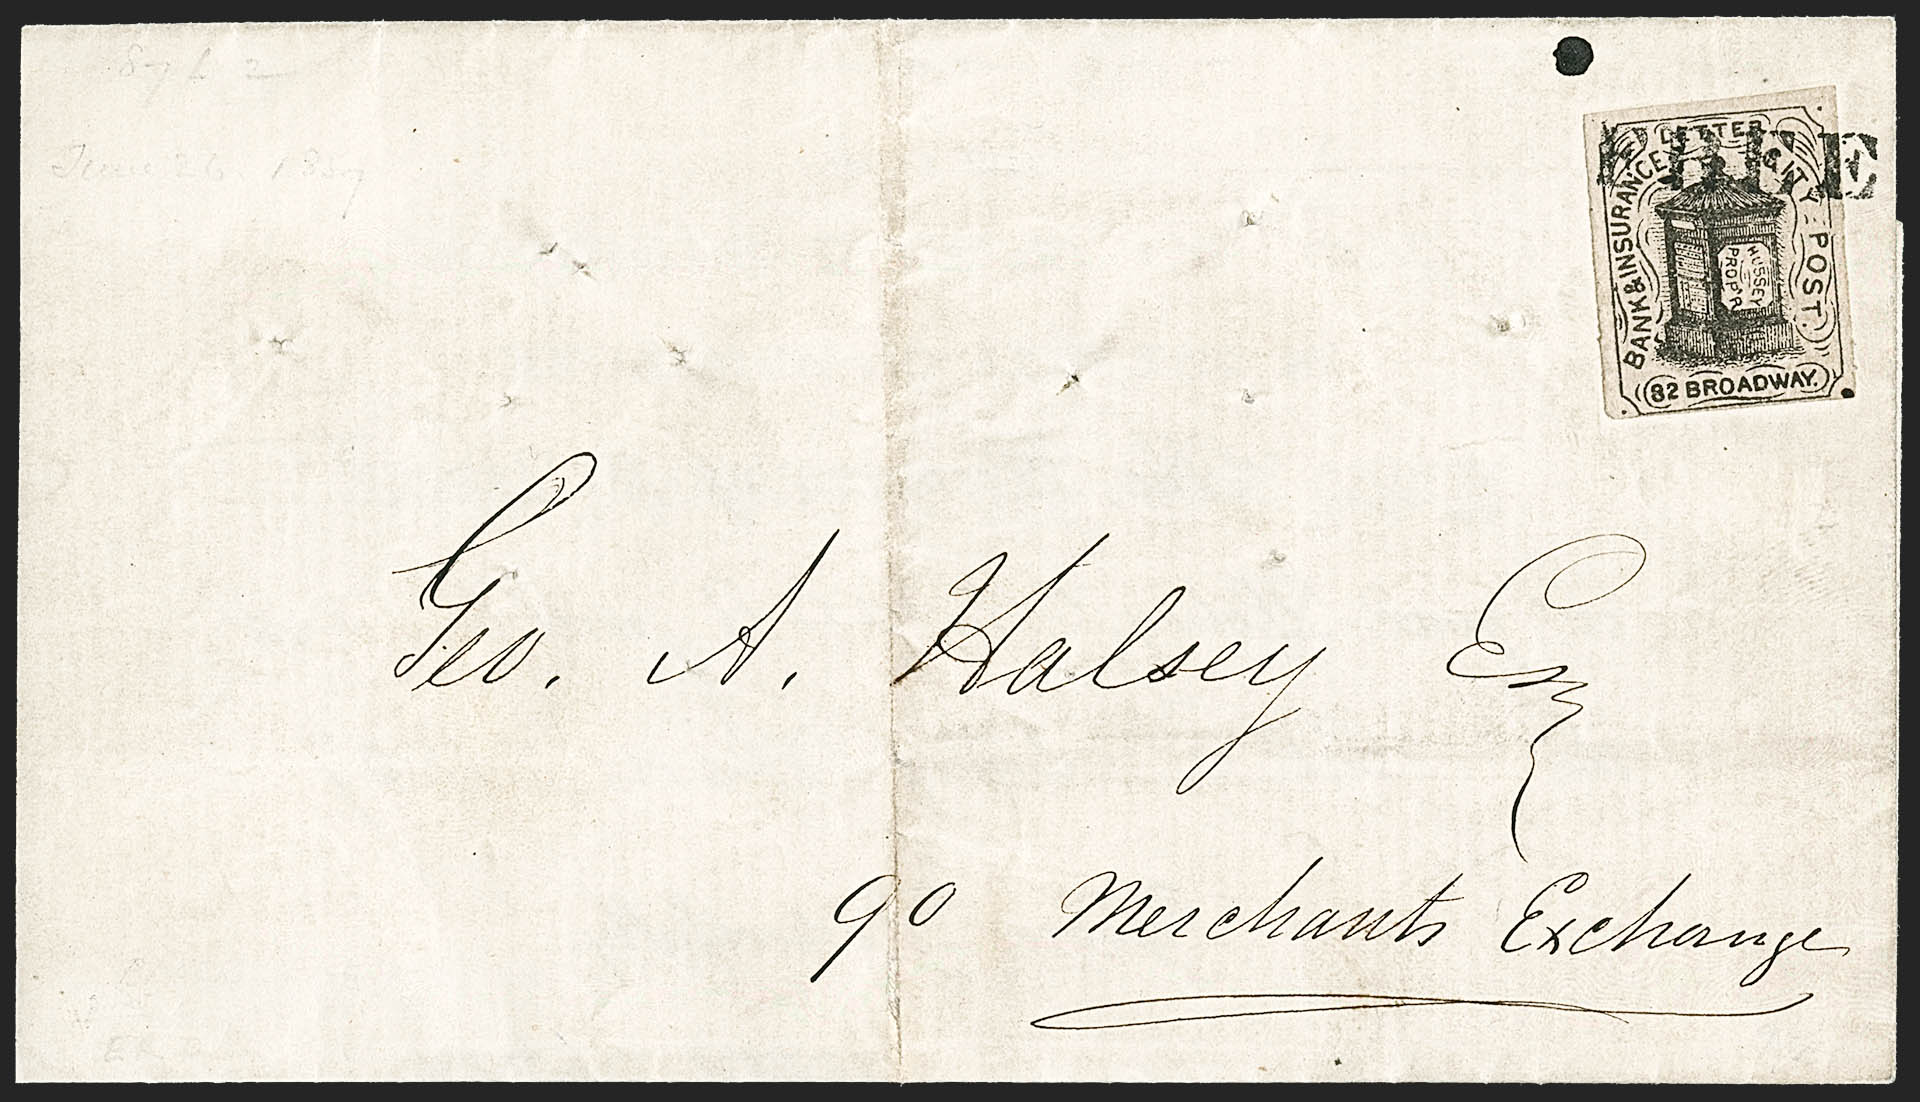 June 26 1857
LETTER
BANK & INSURANCE CITY POST.
FREE
HUSSEY
PROP'R
82 BROADWAY.
Geo. A. Halsey Esq
90 Merchants Exchange